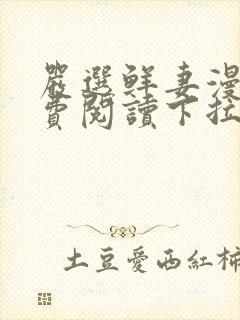 嚴選鮮妻漫
費閱讀下拉
土豆愛西紅柿